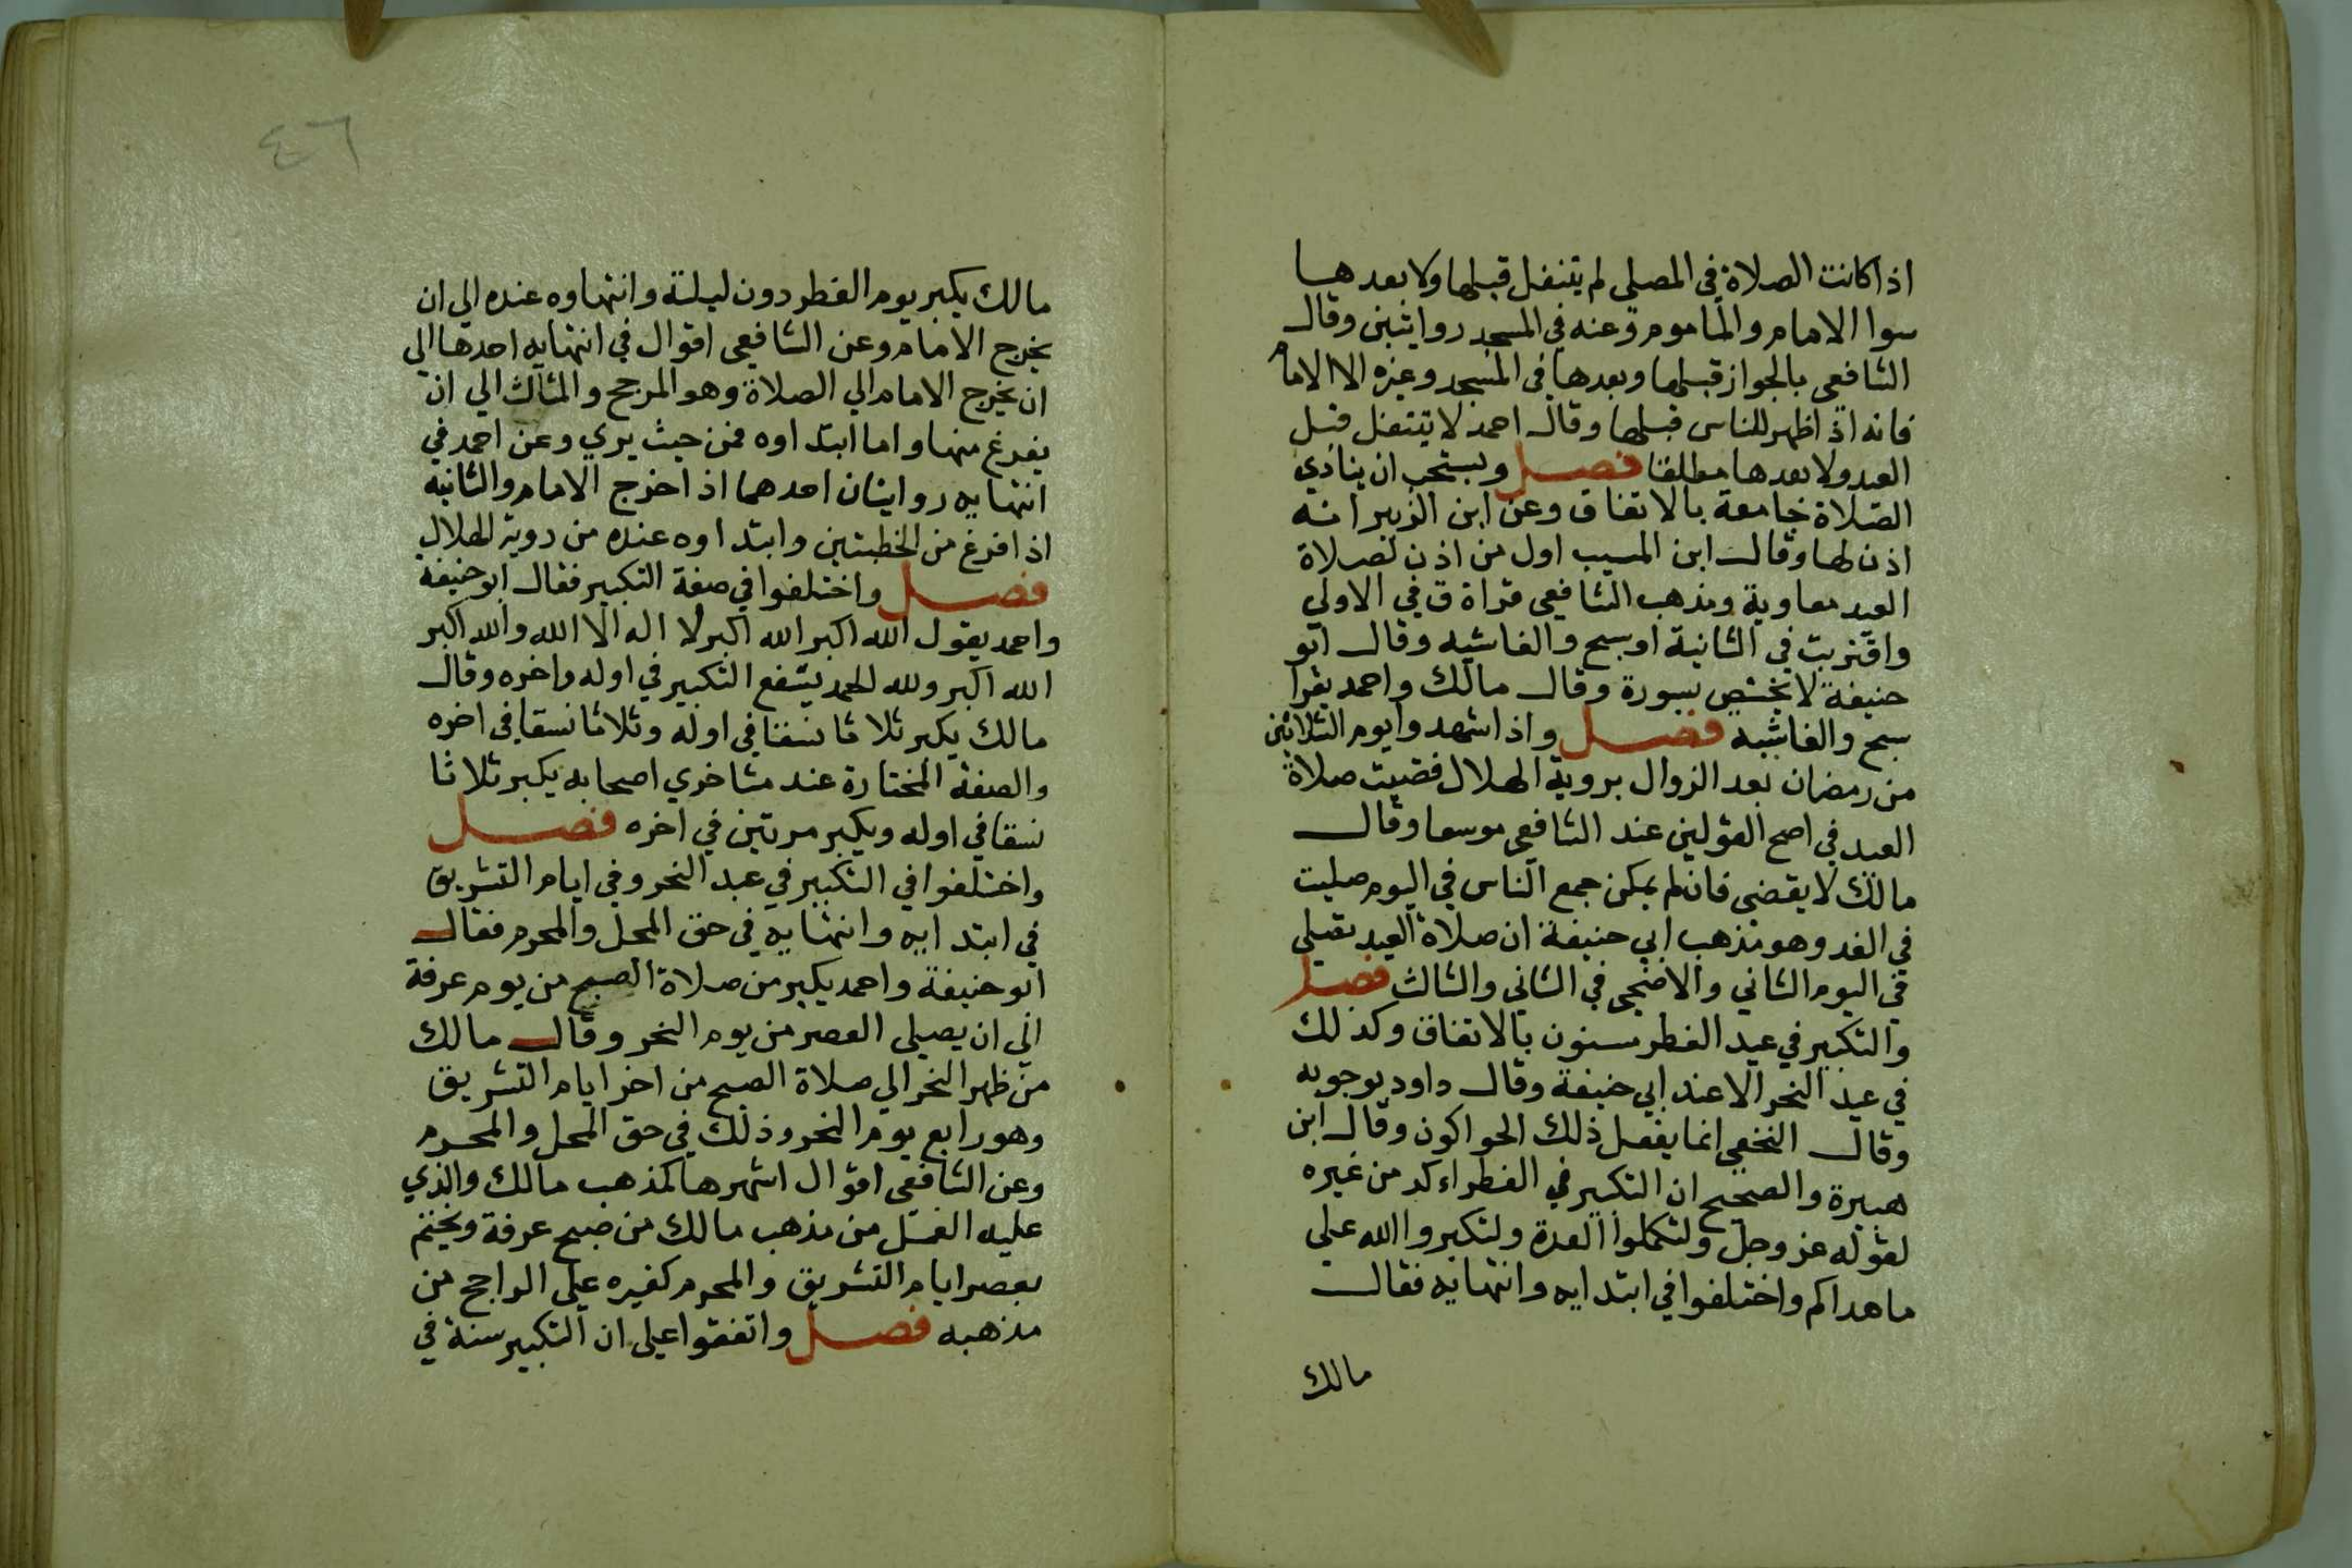 اذا كانت الصلاة في المصلي لم يتنفل قبلها ولا بعدها
سوا الامام والماموم وعنه في المسجد روايتين وقال
الشافعي بالجواز قبلها وبعدها في المسجد وغيره الا الامام
فانه اذا ظهر للناس قبلها وقال احمد لا يتنفل قبل
العيد ولا بعدها مطلقا فصل ويستحب ان ينادي
الصلاة جامعة بالاتفاق وعن ابن الزبير انه
اذن لها وقال ابن المسيب اول من اذن لصلاة
العيد معاوية ومذهب الشافعي قراة ق في الاولي
واقتربت في الثانية او سبح والغاشيه وقال ابو
حنيفة لا يختص بسورة وقال مالك واحمد يقرا
سبح والغاشيه فصل واذا شهدوا يوم الثلاثين
من رمضان بعد الزوال بروية الهلال قضيت صلاة
العيد في اصح القولين عند الشافعي موسعا وقال
مالك لا يقضي فان لم يمكن جمع الناس في اليوم صليت
في الغد وهو مذهب ابي حنيفة ان صلاة العيد تصلي
في اليوم الثاني والاضحي في الثاني والثالث فصل
والتكبير في عيد الفطر مسنون بالاتفاق وكذلك
في عيد النحر الا عند ابي حنيفة وقال داود بوجوبه
وقال النخعي انما يفعل ذلك الحواكون وقال ابن
هبيرة والصحيح ان التكبير في الفطر اءكد من غيره
لقوله عز وجل ولتكملوا العدة ولتكبروا الله علي
ما هداكم واختلفوا في ابتدايه وانتهايه فقال
مالك
٤٦
مالك يكبر يوم الفطر دون ليلته وانتهاوه عنده الي ان
يخرج الامام وعن الشافعي اقوال في انتهايه احدها الي
ان يخرج الامام الي الصلاة وهو المرجح والثالث الي ان
يفرغ منها واما ابتداوه فمن حيث يري وعن احمد في
انتهايه روايتان احدهما اذا خرج الامام والثانيه
اذا فرغ من الخطبتين وابتداوه عنده من روية الهلال
فصل واختلفوا في صفة التكبير فقال ابو حنيفة
واحمد يقول الله اكبر الله اكبر لا اله الا الله والله اكبر
الله اكبر ولله الحمد يشفع التكبير في اوله واخره وقال
مالك يكبر ثلاثا نسقا في اوله وثلاثا نسقا في اخره
والصفة المختارة عند متاخري اصحابه يكبر ثلاثا
نسقا في اوله ويكبر مرتين في اخره فصل
واختلفوا في التكبير في عيد النحر وفي ايام التشريق
في ابتدايه وانتهايه في حق المحل والمحرم فقال
ابو حنيفة واحمد يكبر من صلاة الصبح من يوم عرفة
الي ان يصلي العصر من يوم النحر وقال مالك
من ظهر النحر الي صلاة الصبح من اخر ايام التشريق
وهو رابع يوم النحر وذلك في حق المحل والمحرم
وعن الشافعي اقوال اشهرها كمذهب مالك والذي
عليه العمل من مذهب مالك من صبح عرفة ويختم
بعصر ايام التشريق والمحرم كغيره علي الراجح من
مذهبه فصل واتفقوا علي ان التكبير سنة في